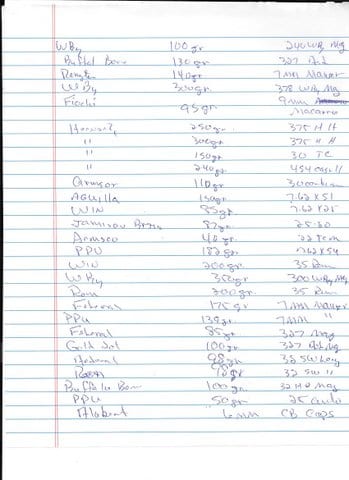 WBy 100 gr 240 WBy Mg
Buffalo Bore 130 gr 327 Fed
Remgtn 140 gr 7 MM Mauser
WBy 300 gr 378 WBy Mg
Fiochi 95 gr 9 mm
Makarov
Hornady 250 gr 375 H H
" 300 gr 375 H. H
" 150 gr 30 TC
" 240 gr 454 Casull
Armscor 110 gr 30 carbine
Aguilla 150 gr 7.62 x 51
WIN 85 gr 7.62 x 25
Jamison Brass 87 gr 25-20
Armsco 40 gr 22
PPU 182 gr 7.62 x 54
WIN 200 gr 35 Rem
WBy 350 gr 300 WBy Mg
Rem 200 gr 35 Rem
Federal 175 gr 7 MM Mauser
PPU 139 gr 7 MM "
Federal 85 gr 327 Mag
Gold Dot 100 gr 327 Fed Mg
Federal 98 gr 32 SW Long
Rem 98 gr 32 SW "
Buffalo Bore 100 gr 32 H&R Mag
PPU 50 gr 25 auto
6 mm CB Caps